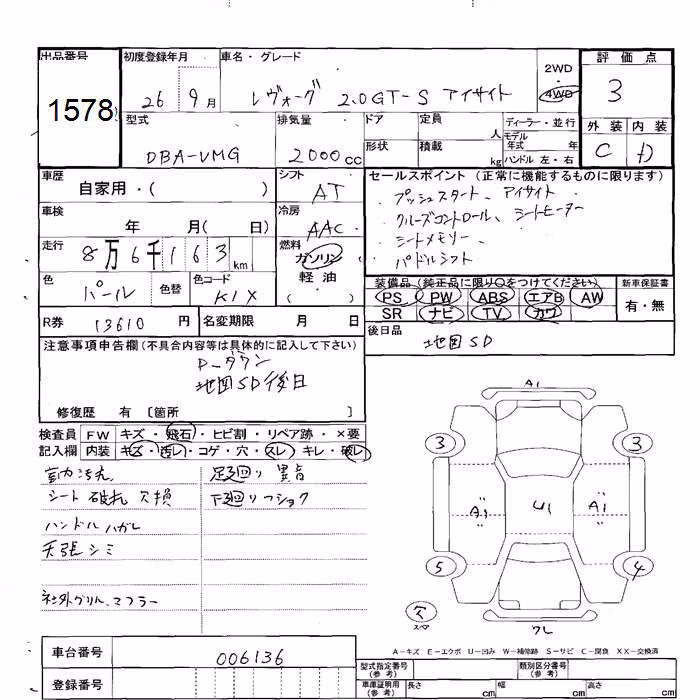 出品番号 初度登録年月 車名・グレード 2WD 評価点
1578 26 9月 レヴォーグ 2.0GT-S アイサイト 4WD 3
型式 排気量 ドア 定員 人 ディーラー・並行 外装 内装
DBA-VMG 2000cc 形状 積載 kg モデル年式 年 C D
ハンドル 左・右
車歴 シフト セールスポイント (正常に機能するものに限ります)
自家用・( ) AT プッシュスタート、アイサイト
車検 冷房 クルーズコントロール、シートヒーター
年 月( 日) AAC シートメモリー、
走行 燃料 パドルシフト
8万6千163km ガソリン
軽油
( )
色 色替 色コード 装備品 (純正品に限り○をつけてください) 新車保証書
パール K1X PS PW ABS エアB AW 有・無
SR ナビ TV カワ
R券 13610円 名変期限 月 日 後日品
地図SD
注意事項申告欄(不具合内容等は具体的に記入して下さい)
P-ダウン
地図SD後日
修復歴 有 〔箇所 〕
検査員 FW キズ・飛石・ヒビ割・リペア跡・×要
記入欄 内装 キズ・汚レ・コゲ・穴・スレ・キレ・破レ
室内汚れ 足廻り 異音
シート 破れ 欠損 下廻りフショク
ハンドル ハガレ
天張シミ
社外グリル、マフラー
A1
3 3
A1 U1 A1
5 4
欠 スペア
ワレ
A-キズ E-エクボ U-凹み W-補修跡 S-サビ C-腐食 XX-交換済
車台番号 006136
登録番号
型式指定番号(参考) 類別区分番号(参考)
車庫証明用(参考) 長さ cm 幅 cm 高さ cm